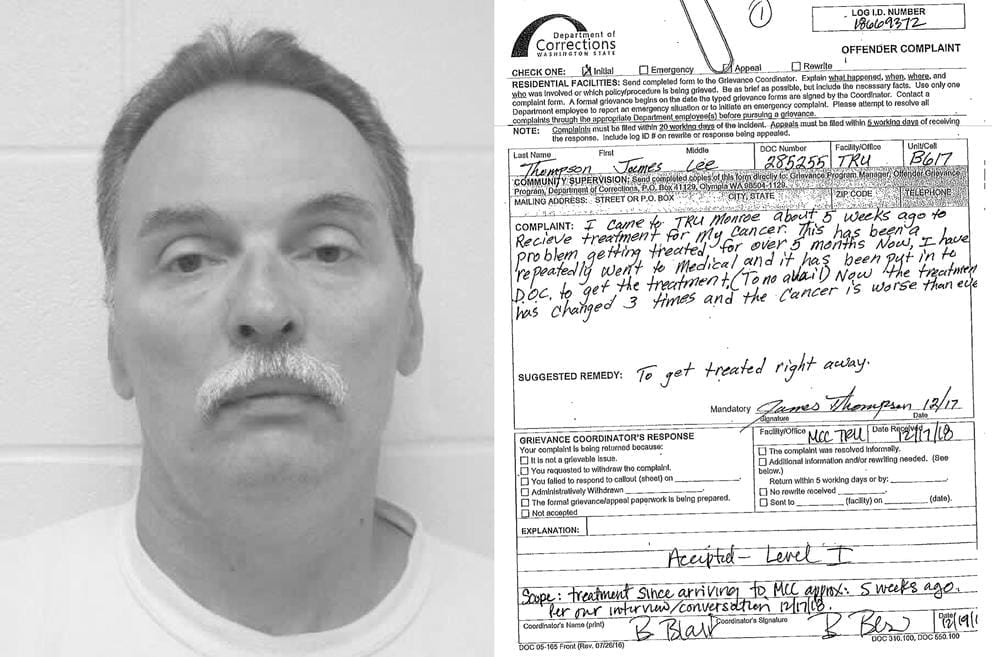 Department of
Corrections
WASHINGTON STATE
1
LOG I.D. NUMBER
18669372
OFFENDER COMPLAINT
CHECK ONE: Initial Emergency Appeal Rewrite
RESIDENTIAL FACILITIES: Send completed form to the Grievance Coordinator. Explain what happened, when, where, and
who was involved or which policy/procedure is being grieved. Be as brief as possible, but include the necessary facts. Use only one
complaint form. A formal grievance begins on the date the typed grievance forms are signed by the Coordinator. Contact a
Department employee to report an emergency situation or to initiate an emergency complaint. Please attempt to resolve all
complaints through the appropriate Department employee(s) before pursuing a grievance.
NOTE: Complaints must be filed within 20 working days of the incident. Appeals must be filed within 5 working days of receiving
the response. Include log ID # on rewrite or response being appealed.
Last Name First Middle DOC Number Facility/Office Unit/Cell
Thompson James Lee 285255 TRU B617
COMMUNITY SUPERVISION: Send completed copies of this form directly to: Grievance Program Manager, Offender Grievance
Program, Department of Corrections, P.O. Box 41129, Olympia WA 98504-1129.
MAILING ADDRESS: STREET OR P.O. BOX CITY, STATE ZIP CODE TELEPHONE
COMPLAINT: I came to TRU Monroe about 5 weeks ago to
Recieve treatment for my cancer. This has been a
problem getting treated, for over 5 months Now, I have
repeatedly went to Medical and it has been put in to
D.O.C. to get the treatment, (To no avail) Now the treatmen
has changed 3 times and the cancer is worse than eve
SUGGESTED REMEDY: To get treated right away.
Mandatory James Thompson 12/17
Signature Date
GRIEVANCE COORDINATOR'S RESPONSE
Your complaint is being returned because:
It is not a grievable issue.
You requested to withdraw the complaint.
You failed to respond to callout (sheet) on
Administratively Withdrawn
The formal grievance/appeal paperwork is being prepared.
Not accepted
Facility/Office MCC TRU Date Received 12/17/18
The complaint was resolved informally.
Additional information and/or rewriting needed. (See
below.)
Return within 5 working days or by:
No rewrite received
Sent to (facility) on (date).
EXPLANATION:
Accepted- Level I
Scope: treatment since arriving to MCC approx. 5 weeks ago.
Per our interview/conversation 12/17/18.
Coordinator's Name (print) B Blair Coordinator's Signature Date 12/19/1
DOC 05-165 Front (Rev. 07/26/16) DOC 310.100, DOC 550.100